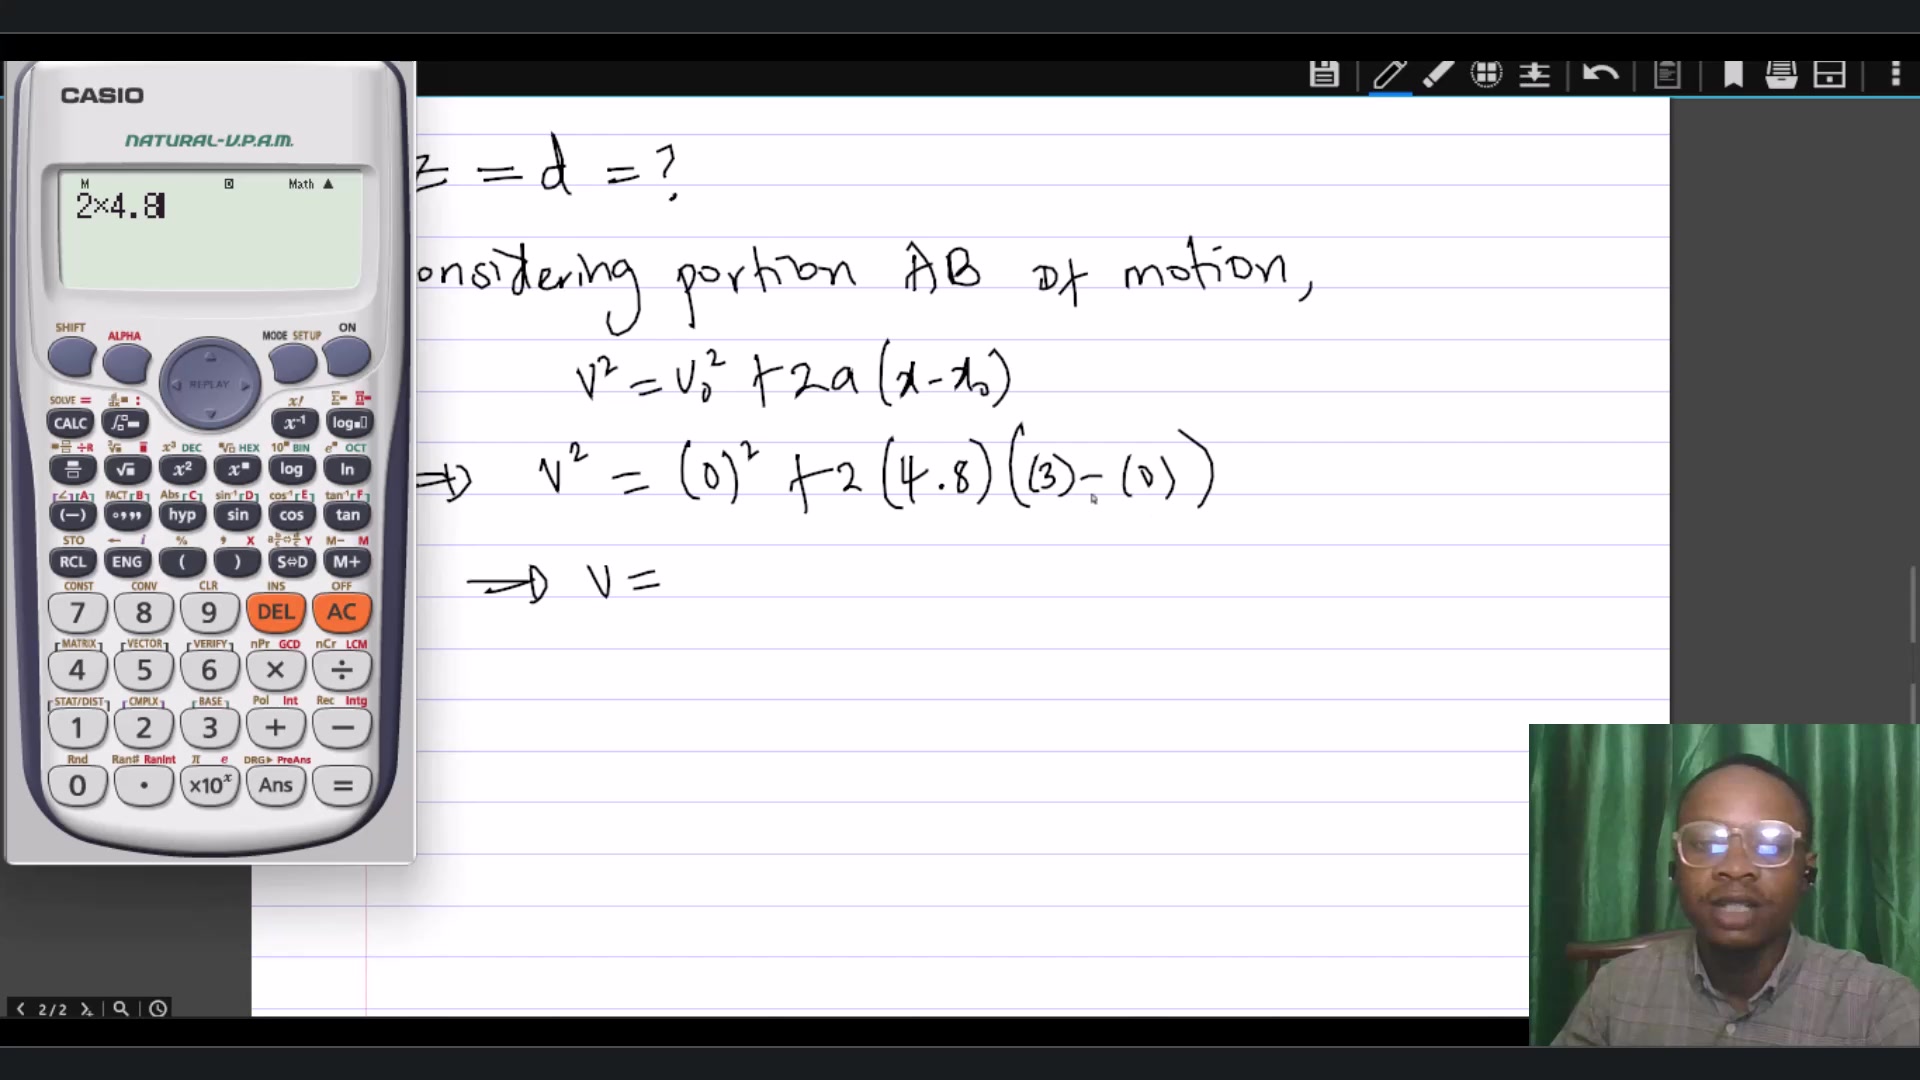 CASIO
NATURAL-V.P.A.M.
M D Math ▲
2×4.8
SHIFT ALPHA REPLAY MODE SETUP ON
SOLVE = x! 
CALC x⁻¹ log
÷R x³ DEC HEX 10 BIN e OCT
√ x² x log ln
A FACT B Abs C sin⁻¹ D cos⁻¹ E tan⁻¹ F
(−) hyp sin cos tan
STO ← i % , X Y M− M
RCL ENG ( ) S⇔D M+
CONST CONV CLR INS OFF
7 8 9 DEL AC
MATRIX VECTOR VERIFY nPr GCD nCr LCM
4 5 6 × ÷
STAT/DIST CMPLX BASE Pol Int Rec Intg
1 2 3 + −
Rnd Ran# RanInt π e DRG▶ PreAns
0 . ×10ˣ Ans =
= d = ?
onsidering portion AB of motion,
v² = v₀² + 2a (x - x₀)
⇒ v² = (0)² + 2 (4.8) ((3) - (0))
⇒ v =
2/2